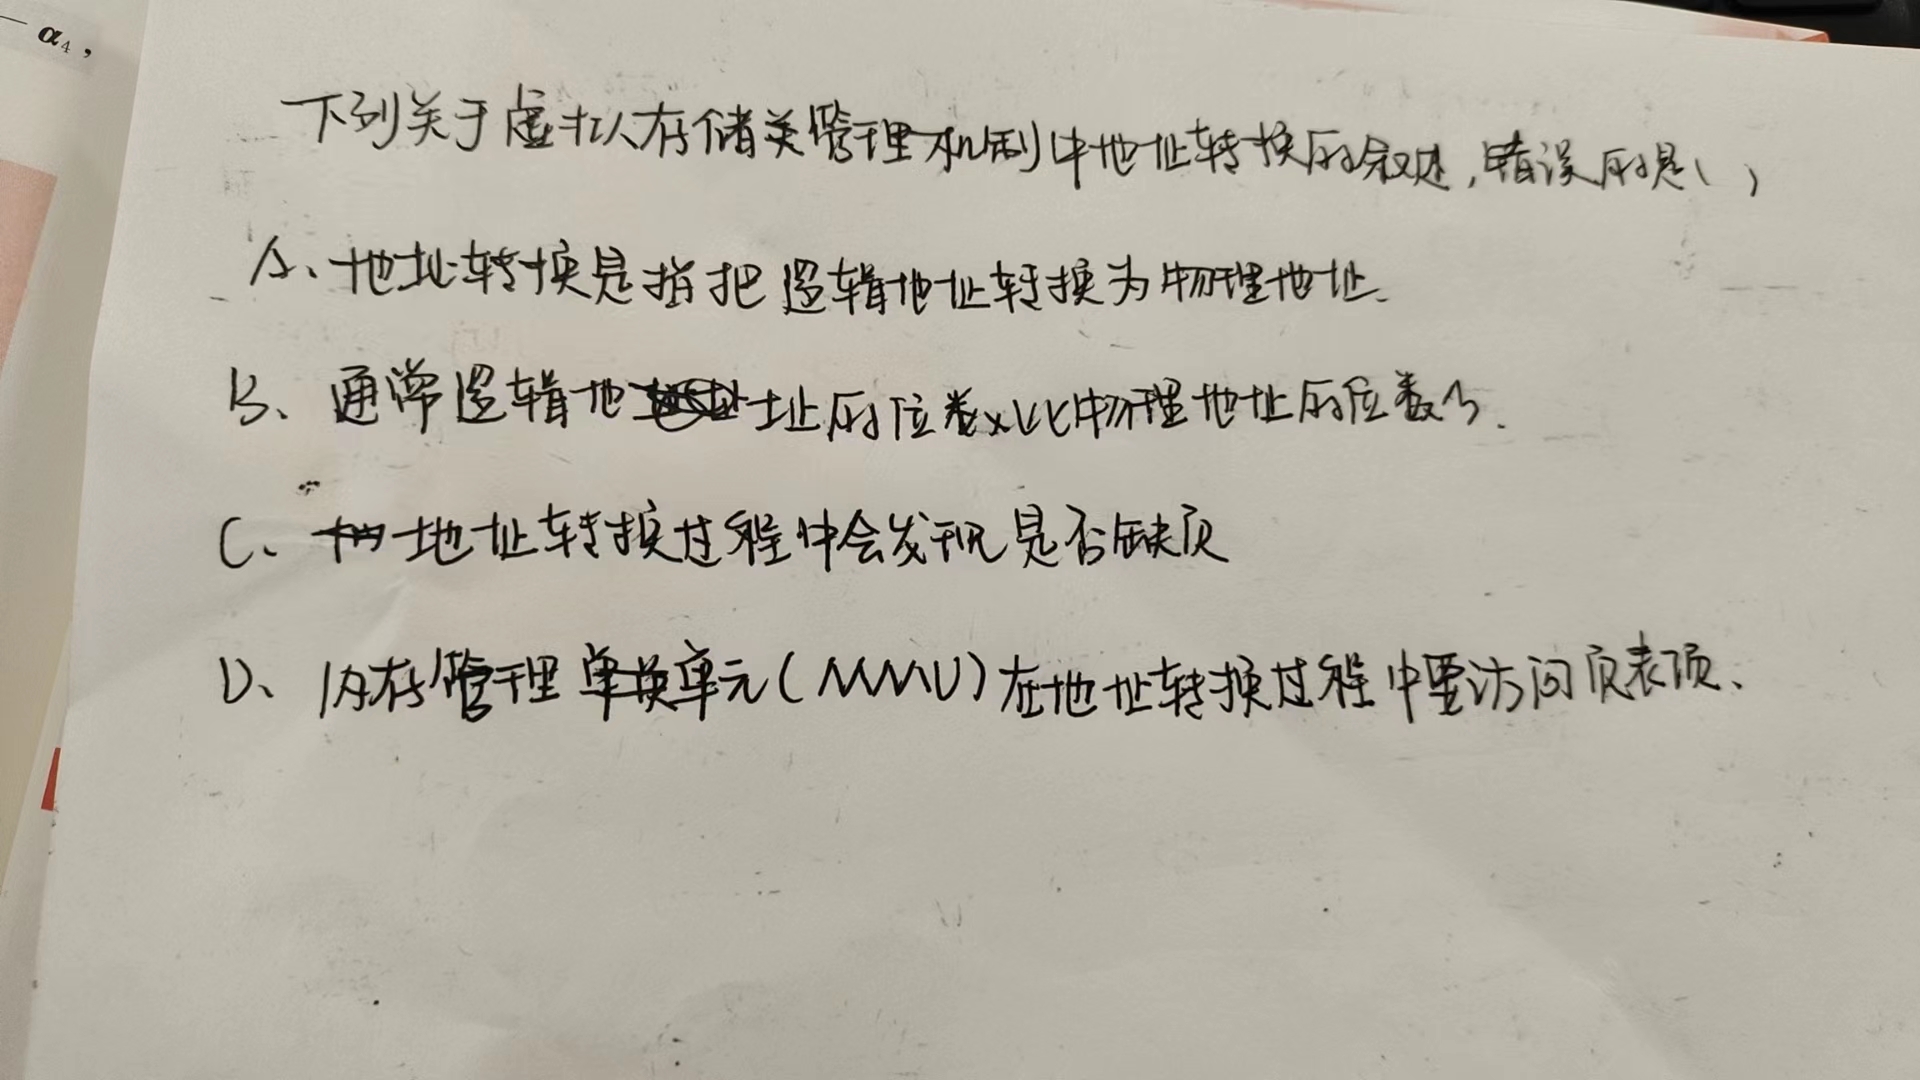 α₄,
下列关于虚拟存储关管理机制中地址转换的叙述,错误的是( )
A、地址转换是指把逻辑地址转换为物理地址.
B、通常逻辑地址的位数比物理地址的位数少.
C、地址转换过程中会发现是否缺页
D、内存管理单元(MMU)在地址转换过程中要访问页表项、